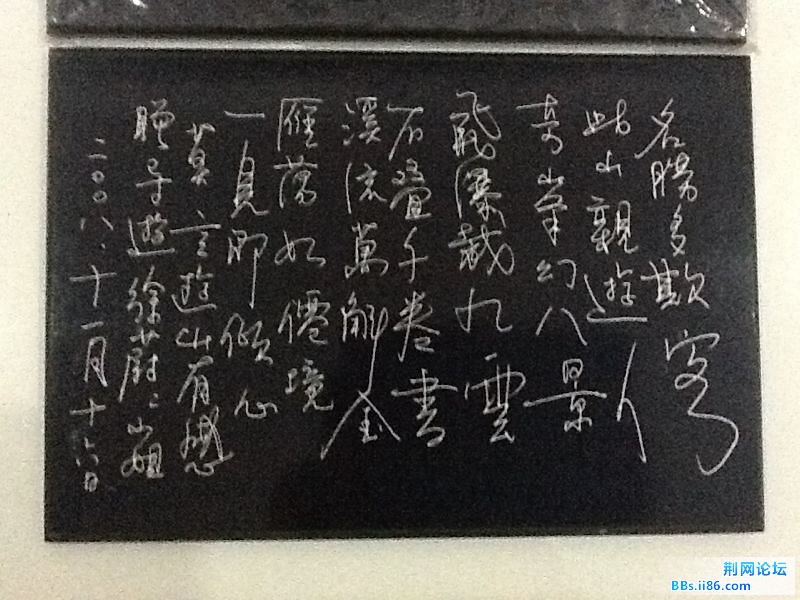 名勝多欺客
此山親遊人
奇峯幻八景
飛瀑裁九雲
石叠千卷書
溪流萬斛金
雁蕩如僊境
一見即傾心
莫言遊山有感
贈导遊徐蔚〻小姐
二〇〇八.十一月十六日
荆网论坛
BBs.ii86.com